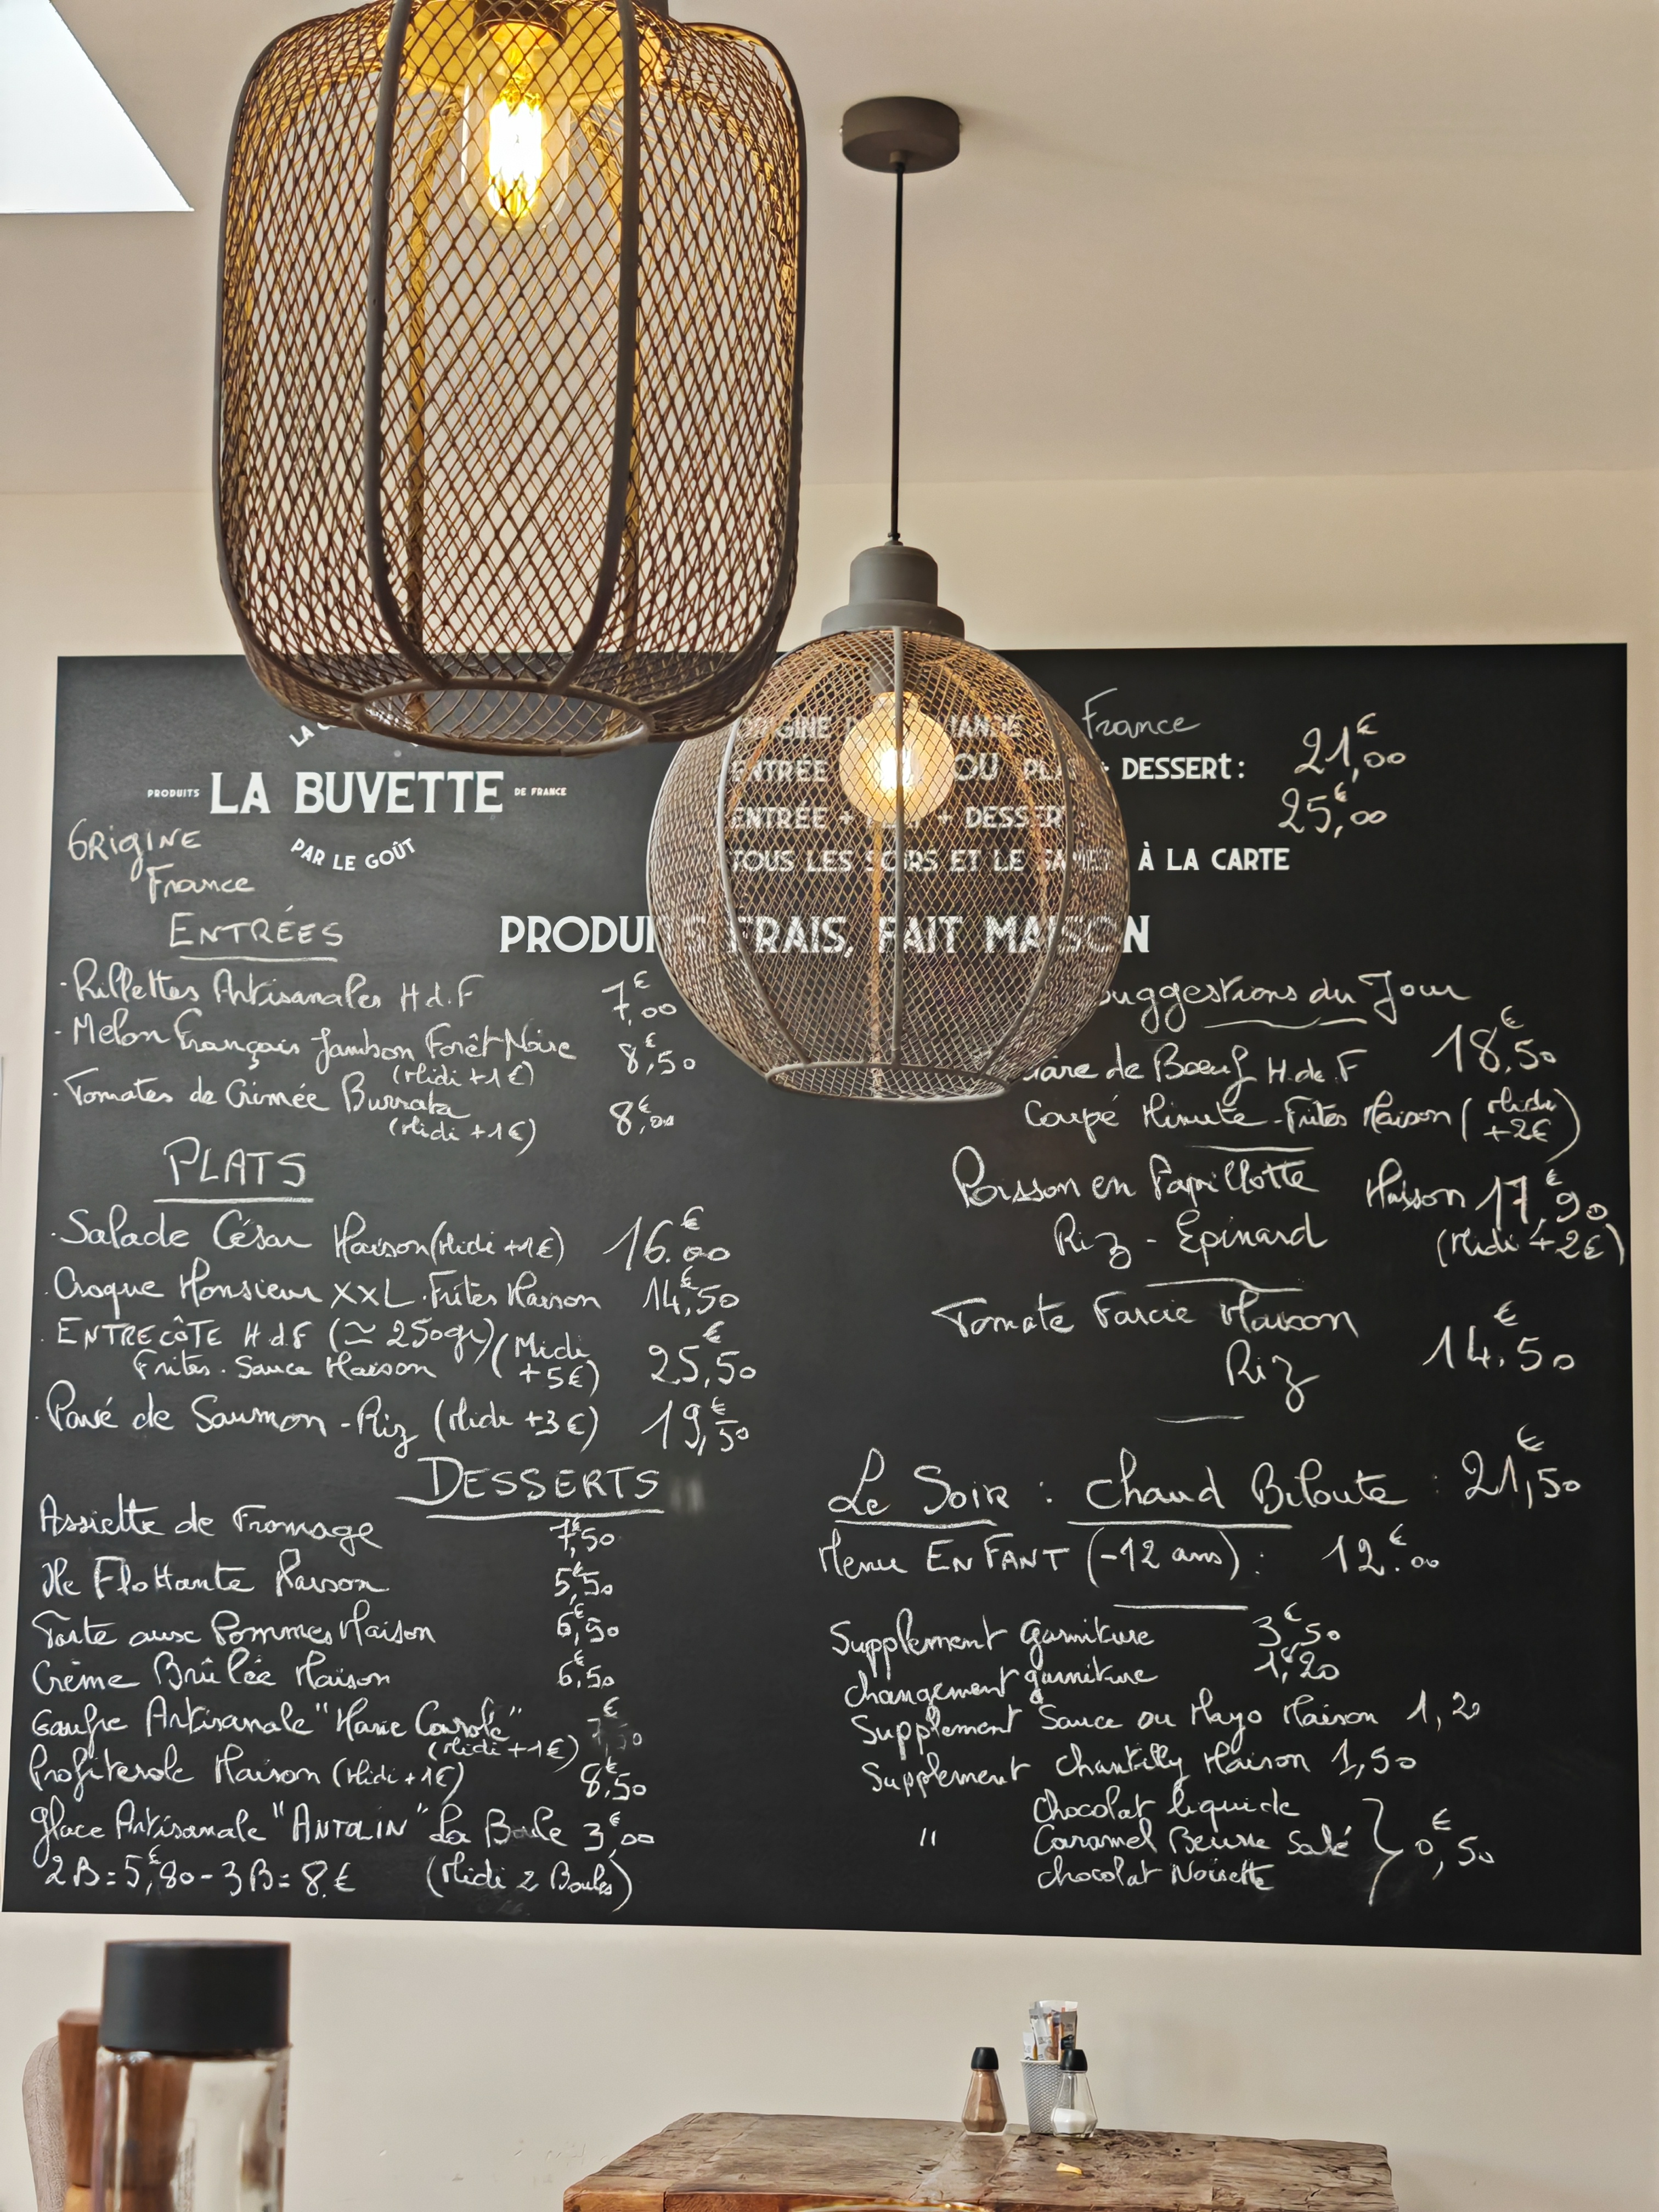 PRODUITS LA BUVETTE DE FRANCE
PAR LE GOÛT
ORIGINE
France
ORIGINE VIANDE France
ENTRÉE + PLAT OU PLAT + DESSERT: 21,00€
ENTRÉE + PLAT + DESSERT 25,00€
TOUS LES SOIRS ET LE SAMEDI À LA CARTE
PRODUITS FRAIS, FAIT MAISON
ENTRÉES
- Rillettes Artisanales H.d.F 7,00€
- Melon Français Jambon Forêt Noire 8,50€
(Midi +1€)
- Tomates de Crimée Burrata 8,00€
(Midi +1€)
PLATS
- Salade César Maison (Midi +1€) 16.00€
- Croque Monsieur XXL. Frites Maison 14,50€
- ENTRECÔTE H.d.F (≃ 250gr) (Midi +5€) 25,50€
Frites. Sauce Maison
- Pavé de Saumon - Riz (Midi +3€) 19,50€
DESSERTS
Assiette de Fromage 7,50€
Ile Flottante Maison 5,50€
Tarte aux Pommes Maison 6,50€
Crème Brûlée Maison 6,50€
Gaufre Artisanale "Marie
(Midi +1€)
Profiterole Maison (Midi +1€) 8,50€
Glace Artisanale "ANTOLIN" La Boule 3,00€
2B = 5,80€ - 3B = 8.€ (Midi 2 Boules)
Suggestions du Jour
de Bœuf H.d.F 18,50€
Coupé Minute - Frites Maison (Midi +2€)
Poisson en Papillotte Maison 17,90€
Riz - Epinard (Midi +2€)
Tomate Farcie Maison
Riz 14.50€
Le Soir : Chaud Biloute : 21,50€
Menu ENFANT (-12 ans) : 12.00€
Supplement garniture 3,50€
changement garniture 1,20€
Supplement Sauce ou Mayo Maison 1,20
Supplement Chantilly Maison 1,50
Chocolat liquide
" Caramel Beurre Salé } 0,50€
chocolat Noisette